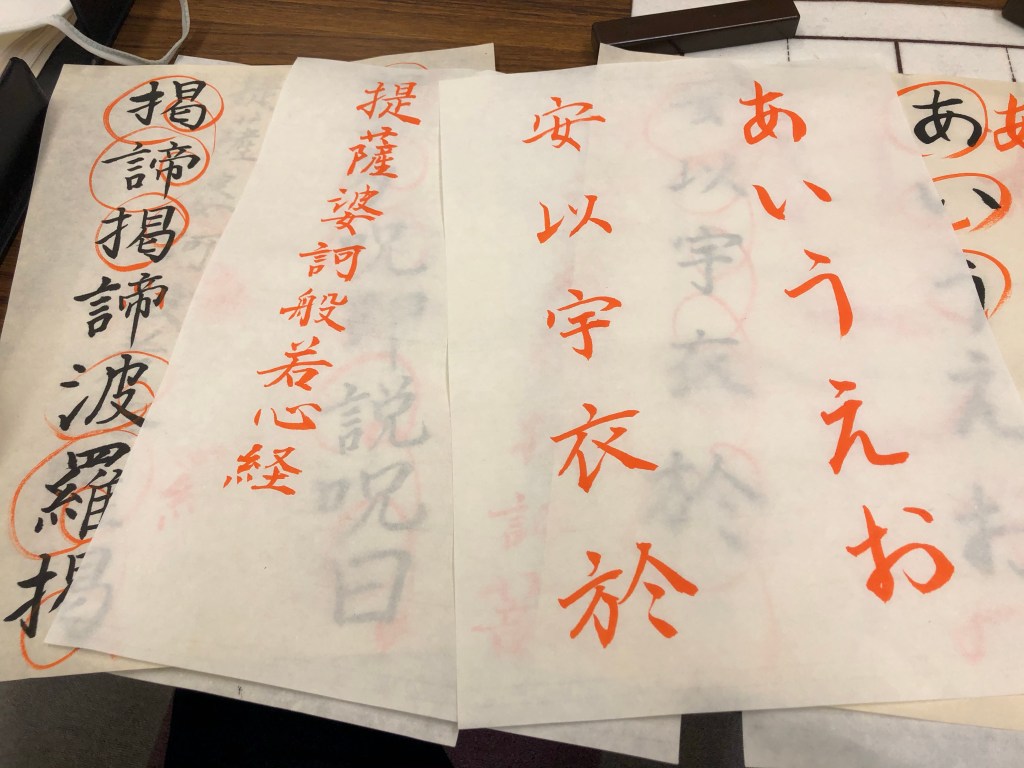 あ
い
う
あ
あいうえお
安以宇衣於
提薩婆訶般若心経
説呪曰
掲諦掲諦波羅掲